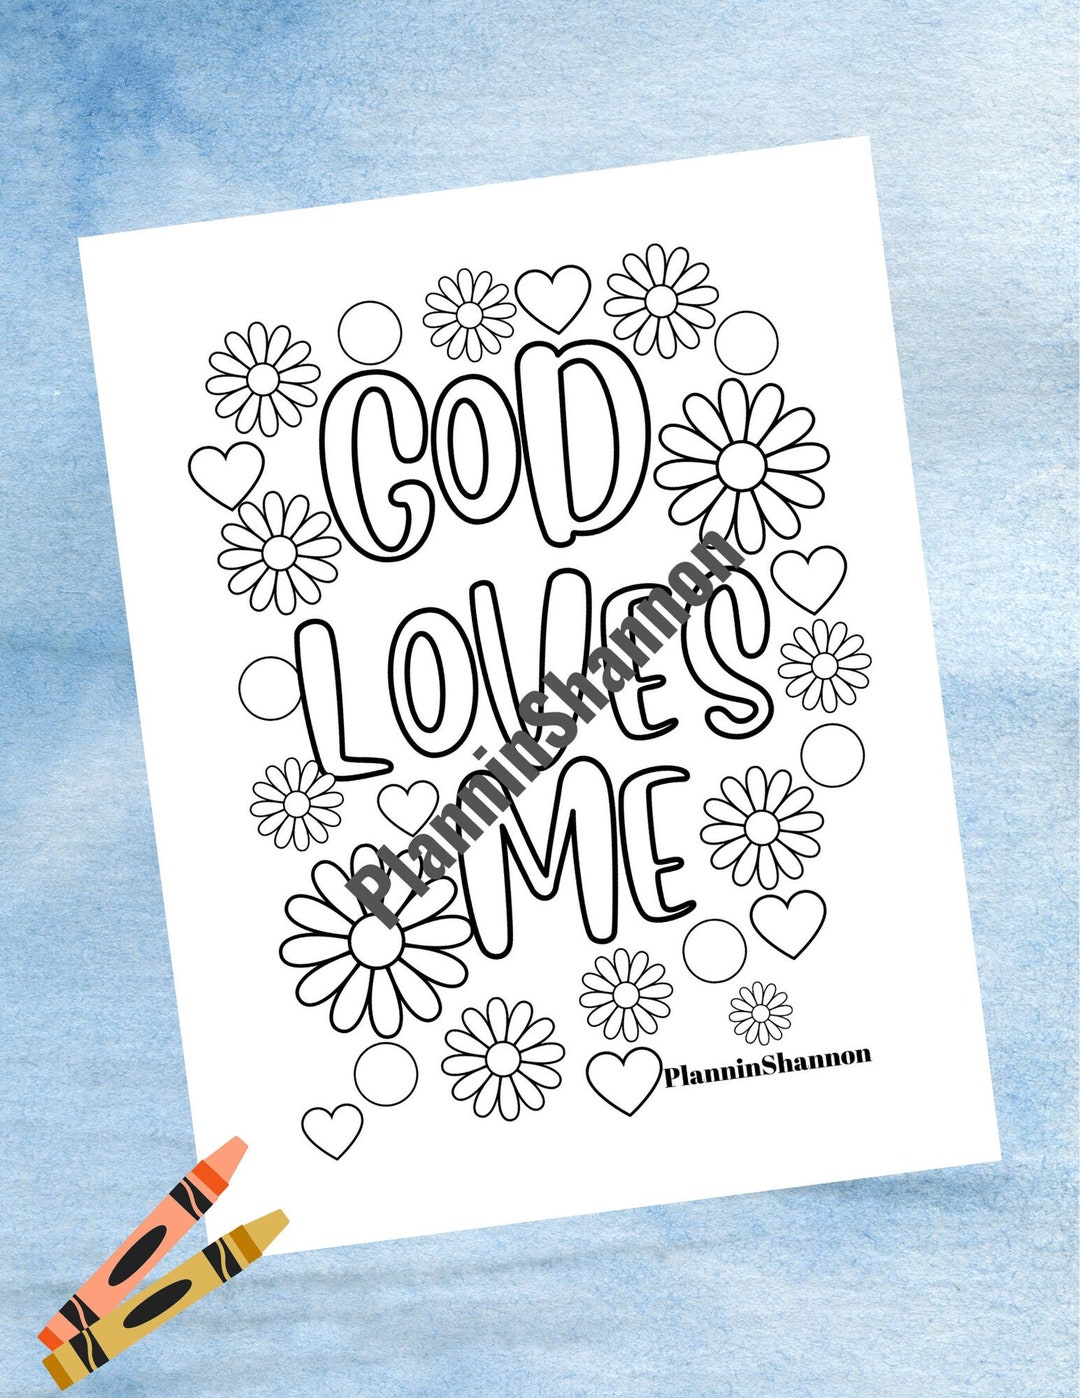 GOD
LOVES
ME
PlanninShannon
PlanninShannon